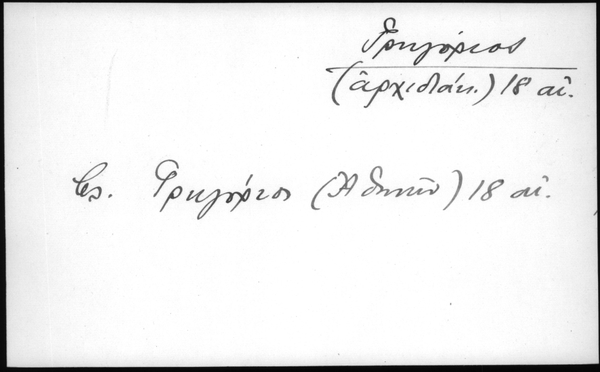 Γρηγόριος
(ἀρχιδιάκ.) 18 αἰ.
Γρηγόριος (Ἀθηνῶν) 18 αἰ.